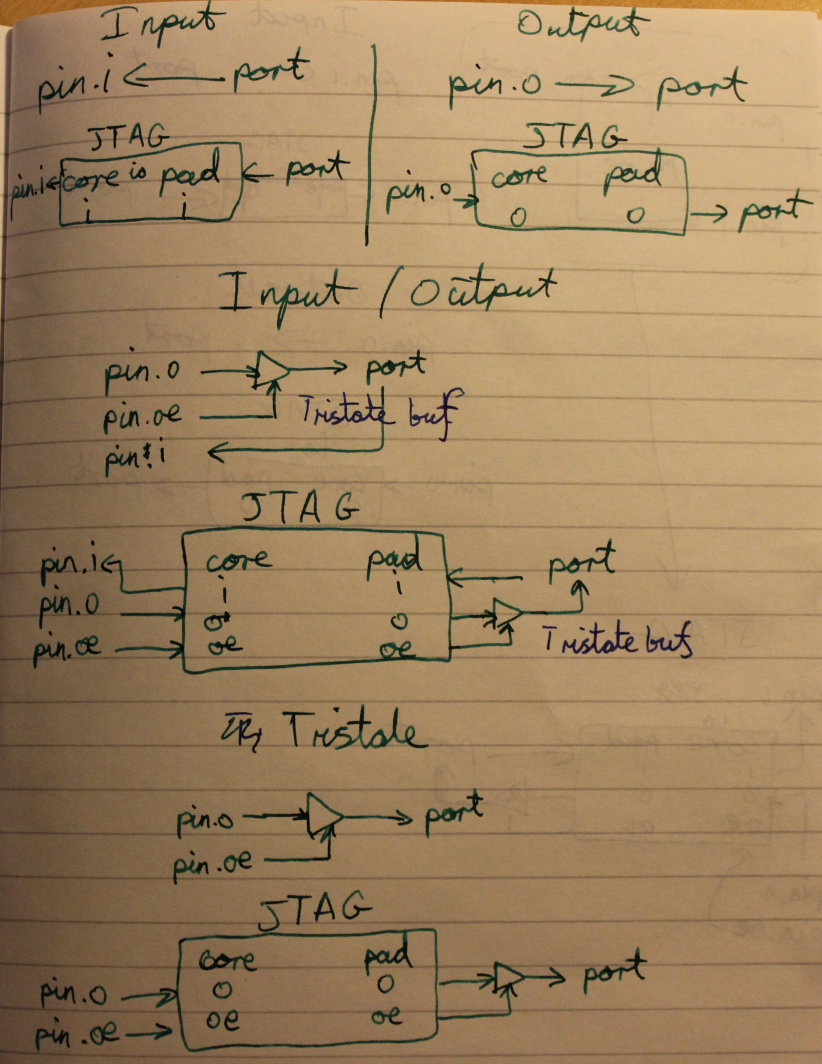 Input Output
pin.i port pin.o port
JTAG JTAG
pin.i core io pad port pin.o core pad
i i o o port
Input / Output
pin.o port
pin.oe Tristate buf
pin.i
JTAG
pin.i core pad port
i i
pin.o o o
pin.oe oe oe Tristate buf
Tristate
pin.o port
pin.oe
JTAG
core pad port
pin.o o o
pin.oe oe oe